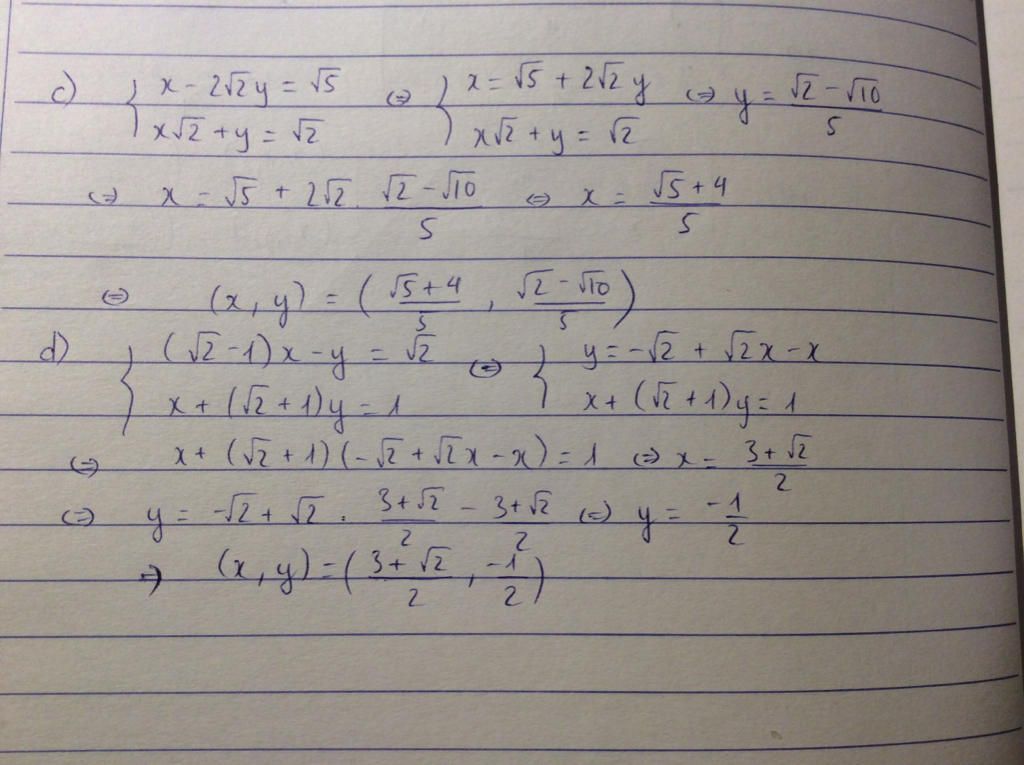 c) { x - 2√2y = √5 ⇔ { x = √5 + 2√2y ⇔ y = (√2 - √10)/5
x√2 + y = √2 x√2 + y = √2
⇔ x = √5 + 2√2 . (√2 - √10)/5 ⇔ x = (√5 + 4)/5
⇔ (x, y) = ( (√5 + 4)/5 , (√2 - √10)/5 )
d) { (√2 - 1)x - y = √2 ⇔ { y = -√2 + √2x - x
x + (√2 + 1)y = 1 x + (√2 + 1)y = 1
⇔ x + (√2 + 1)(-√2 + √2x - x) = 1 ⇔ x = (3 + √2)/2
⇔ y = -√2 + √2 . (3 + √2)/2 - (3 + √2)/2 ⇔ y = -1/2
⇒ (x, y) = ( (3 + √2)/2 , -1/2 )